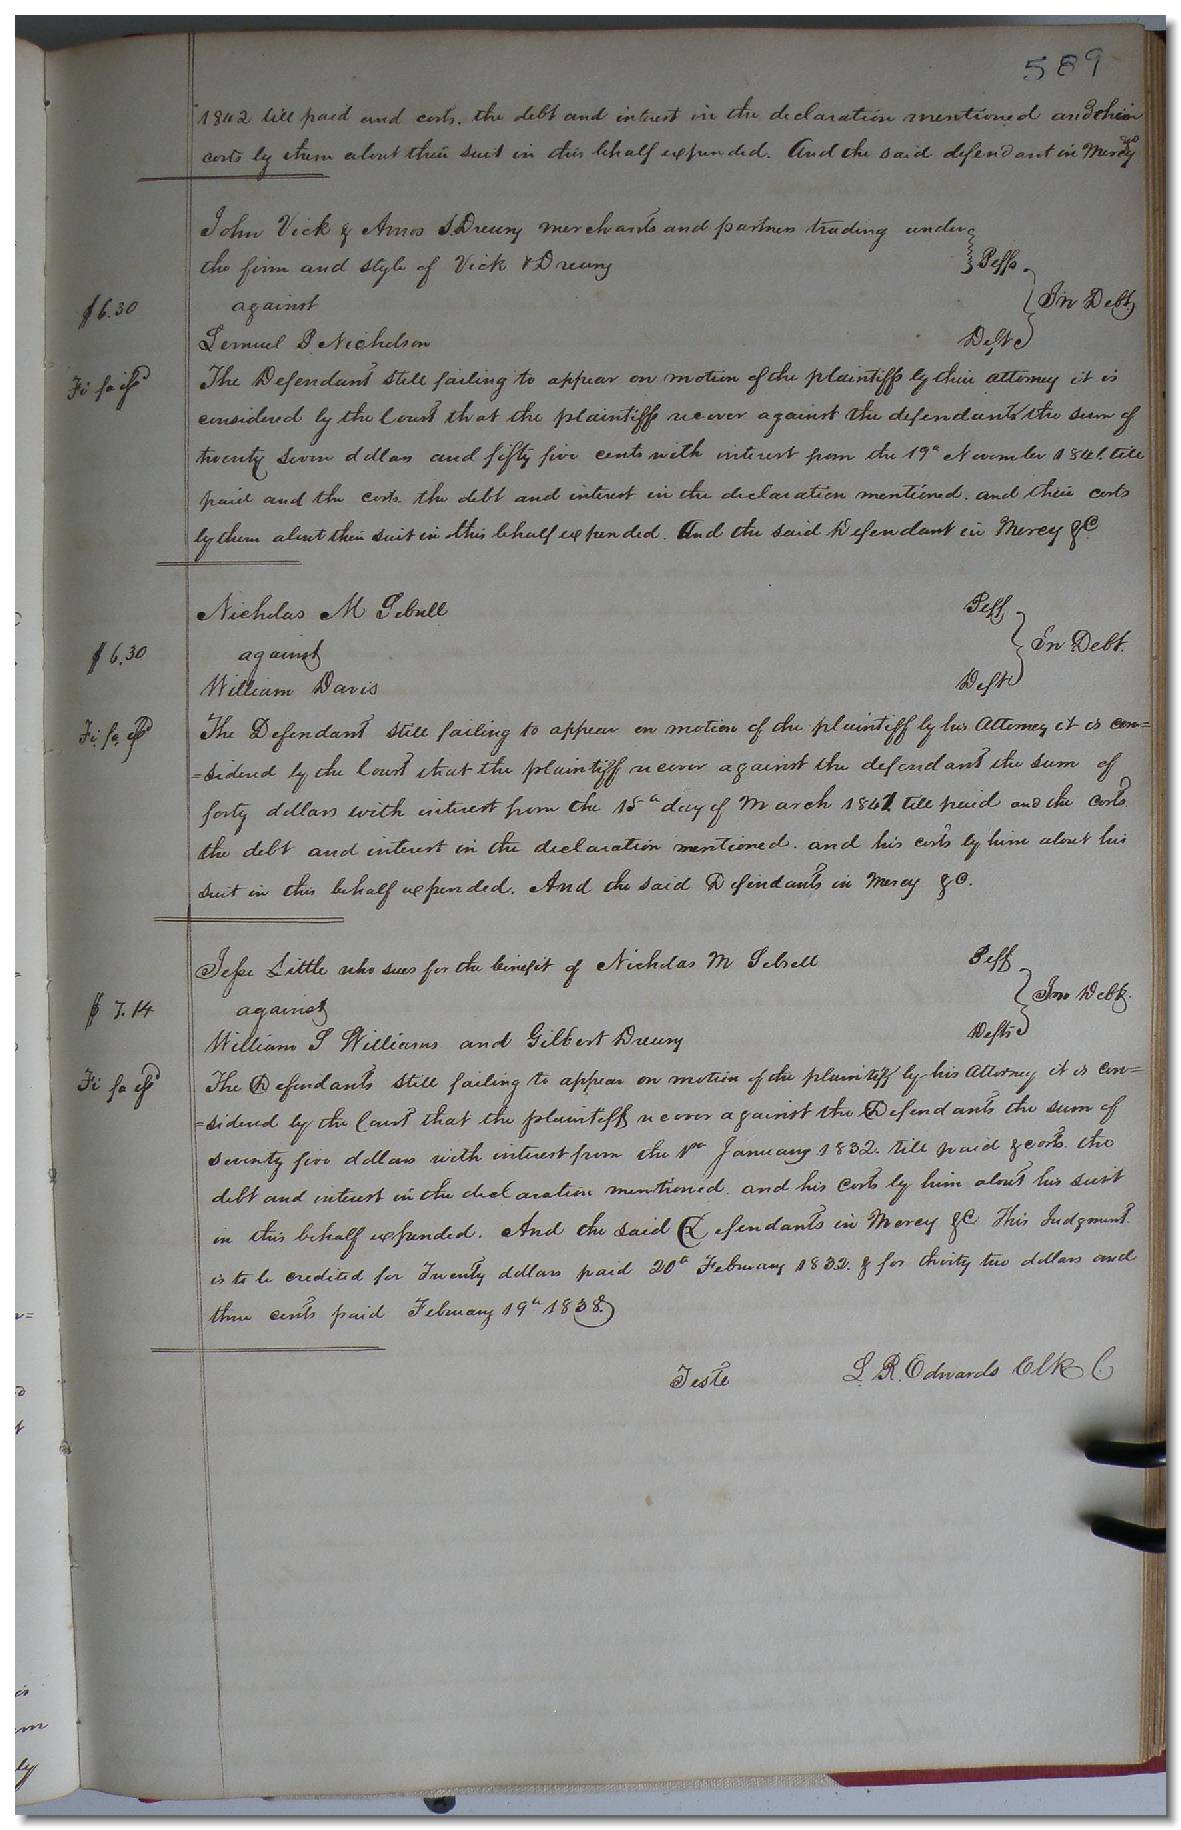 589
1842 till paid and costs. the debt and interest in the declaration mentioned and their
costs by them about their suit in this behalf expended. And the said defendant in Mercy &c
John Vick & Amos J. Drewry merchants and partners trading under
the firm and style of Vick & Drewry } Plffs
$6.30 against } In Debt
Lemuel P Nichelson Deft
Fi fa issd The Defendant still failing to appear on motion of the plaintiffs by their attorney it is
considered by the Court that the plaintiffs recover against the defendants the sum of
twenty seven dollars and fifty five cents with interest from the 19th November 1841. till
paid and the costs. the debt and interest in the declaration mentioned. and their costs
by them about their suit in this behalf expended. And the said Defendant in Mercy &C
Nicholas M Sebrell Plff
$6.30 against } In Debt.
William Davis Deft
Fi. fa. issd The Defendant still failing to appear on motion of the plaintiff by his Attorney it is con=
=sidered by the Court that the plaintiff recover against the defendant the sum of
forty dollars with interest from the 15th day of March 1841 till paid and the costs.
the debt and interest in the declaration mentioned. and his costs by him about his
suit in this behalf expended. And the said Defendants in Mercy &C.
Jesse Little who sues for the benefit of Nicholas M Sebrell Plff
$7.14 against } In Debt.
William S Williams and Gilbert Drewry Defts
Fi fa issd The Defendants still failing to appear on motion of the plaintiff by his Attorney it is con=
=sidered by the Court that the plaintiff recover against the Defendants the sum of
seventy five dollars with interest from the 1st January 1832. till paid & costs. the
debt and interest in the declaration mentioned. and his costs by him about his suit
in this behalf expended. And the said Defendants in Mercy &C This Judgment
is to be credited for Twenty dollars paid 20th February 1832. & for thirty two dollars and
three cents paid February 19th 1838.
Teste L. R. Edwards Clk C.